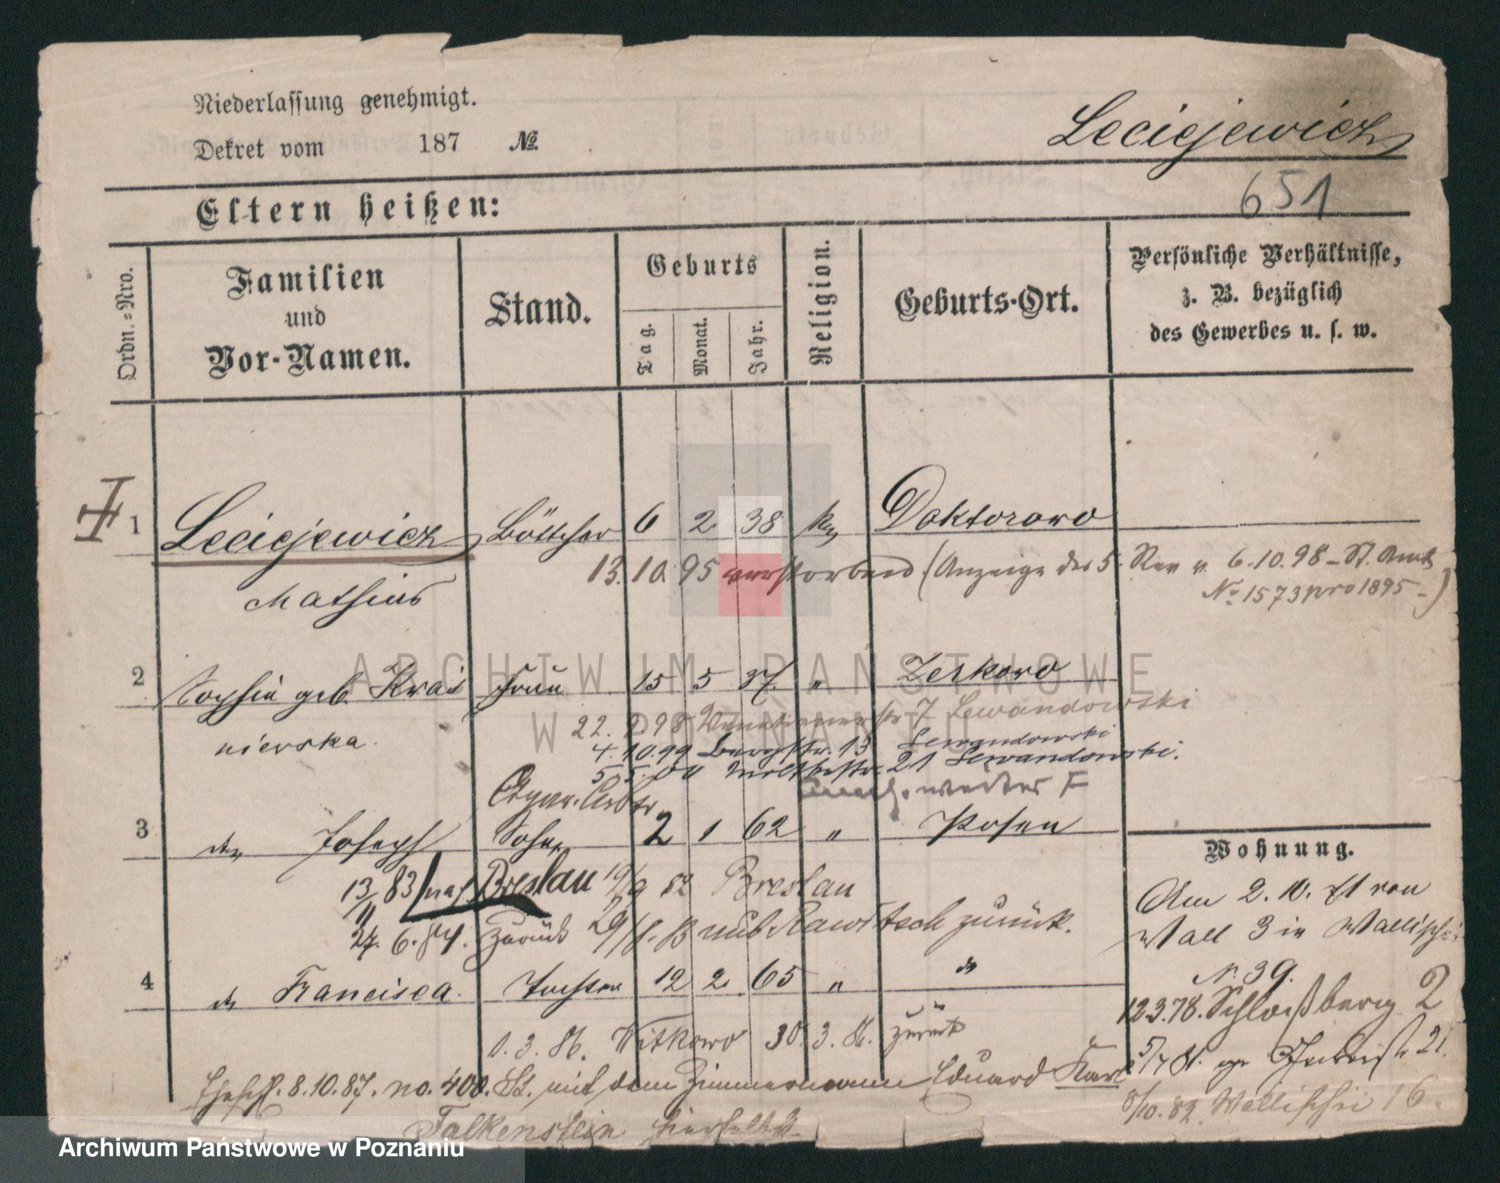 Niederlassung genehmigt.
Dekret vom 187 №
Leciejewicz
651
Eltern heißen:
Ordn.-Nro.
Familien und Vor-Namen.
Stand.
Geburts
Tag.
Monat.
Jahr.
Religion.
Geburts-Ort.
Persönliche Verhältnisse,
z. B. bezüglich
des Gewerbes u. s. w.
1 Leciejewicz Böttcher 6 2 38 Doktorowo
13.10.95 verstorben (Anzeige des 5. Rev v. 6.10.98 – St. Amt
Mathias
No 1573 pro 1895 –)
2 Sophia geb. Kras Frau 15 5 37. " Zerkowo
nierska.
22. 98 Lewandowski
4.10.99 Bergstr. 13 Lewandowski
5.5.00 21 Lewandowski.
3 Joseph Sohn 2 1 62 " Posen
13/11 83 nach Breslau 19/9 82 Breslau
24.6.84. zurück 29/ nach Rawitsch zurück.
4 Francisca. Tochter 12 2 65 "
1.3.86. Witkowo 30.3.86. zurück
8.10.87. no. 400. mit dem Zimmermann Eduard Karl
Falkenstein hierselbst
Wohnung.
Am 2.10. 71 von
Wall 3 in Wallischei
N. 39.
12.3.78. Schloßberg 2
5/4 81. 21.
8/10.82. Wallischei 16.
ARCHIWUM PAŃSTWOWE
W POZNANIU
Archiwum Państwowe w Poznaniu